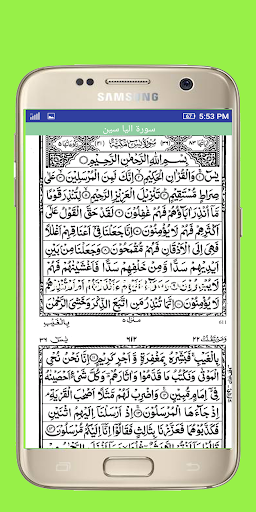 SAMSUNG
67% 5:53 PM
سورة اليا سين
بِسْمِ اللهِ الرَّحْمٰنِ الرَّحِيْمِ
يٰسٓ وَالْقُرْاٰنِ الْحَكِيْمِ اِنَّكَ لَمِنَ الْمُرْسَلِيْنَ عَلٰى
صِرَاطٍ مُّسْتَقِيْمٍ تَنْزِيْلَ الْعَزِيْزِ الرَّحِيْمِ لِتُنْذِرَ قَوْمًا
مَّآ اُنْذِرَ اٰبَآؤُهُمْ فَهُمْ غٰفِلُوْنَ لَقَدْ حَقَّ الْقَوْلُ عَلٰٓى
اَكْثَرِهِمْ فَهُمْ لَا يُؤْمِنُوْنَ اِنَّا جَعَلْنَا فِيْٓ اَعْنَاقِهِمْ اَغْلٰلًا
فَهِيَ اِلَى الْاَذْقَانِ فَهُمْ مُّقْمَحُوْنَ وَجَعَلْنَا مِنْۢ بَيْنِ
اَيْدِيْهِمْ سَدًّا وَّمِنْ خَلْفِهِمْ سَدًّا فَاَغْشَيْنٰهُمْ فَهُمْ
لَا يُبْصِرُوْنَ وَسَوَآءٌ عَلَيْهِمْ ءَاَنْذَرْتَهُمْ اَمْ لَمْ تُنْذِرْهُمْ
لَا يُؤْمِنُوْنَ اِنَّمَا تُنْذِرُ مَنِ اتَّبَعَ الذِّكْرَ وَخَشِيَ الرَّحْمٰنَ
بِالْغَيْبِ
يٰسٓ ٣٦ ٦١٣ ٢٢
بِالْغَيْبِ فَبَشِّرْهُ بِمَغْفِرَةٍ وَّاَجْرٍ كَرِيْمٍ اِنَّا نَحْنُ نُحْيِ
الْمَوْتٰى وَنَكْتُبُ مَا قَدَّمُوْا وَاٰثَارَهُمْ وَكُلَّ شَيْءٍ اَحْصَيْنٰهُ
فِيْٓ اِمَامٍ مُّبِيْنٍ وَاضْرِبْ لَهُمْ مَّثَلًا اَصْحٰبَ الْقَرْيَةِ
اِذْ جَآءَهَا الْمُرْسَلُوْنَ اِذْ اَرْسَلْنَآ اِلَيْهِمُ اثْنَيْنِ
فَكَذَّبُوْهُمَا فَعَزَّزْنَا بِثَالِثٍ فَقَالُوْٓا اِنَّآ اِلَيْكُمْ مُّرْسَلُوْنَ